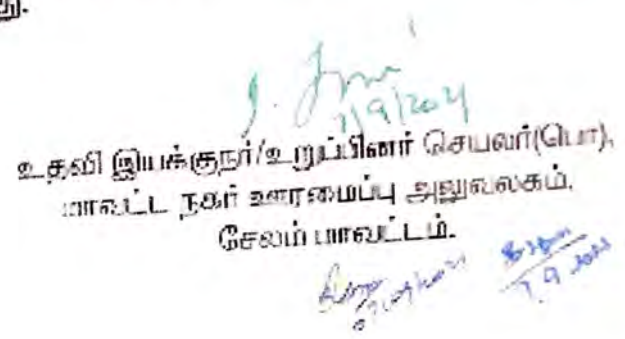 து.
7/9/2021
உதவி இயக்குநர்/உறுப்பினர் செயலர்(பொ),
மாவட்ட நகர் ஊரமைப்பு அலுவலகம்,
சேலம் மாவட்டம்.